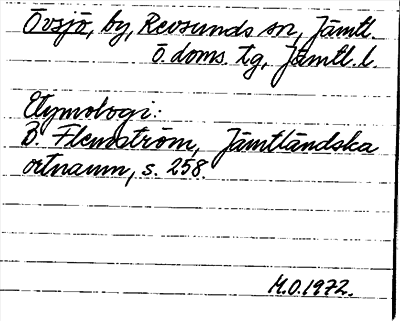 Övsjö, by, Revsunds sn, Jämtl.
ö. doms. tg, Jämtl. l.
Etymologi:
B. Flemström, Jämtländska
ortnamn, s. 258.
M.O.1972.